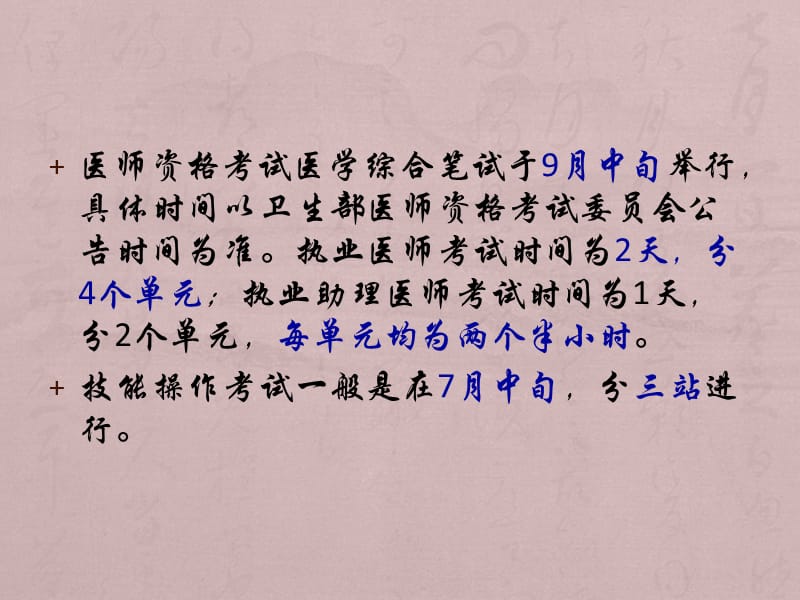 + 医师资格考试医学综合笔试于9月中旬举行，
具体时间以卫生部医师资格考试委员会公
告时间为准。执业医师考试时间为2天，分
4个单元；执业助理医师考试时间为1天，
分2个单元，每单元均为两个半小时。
+ 技能操作考试一般是在7月中旬，分三站进
行。